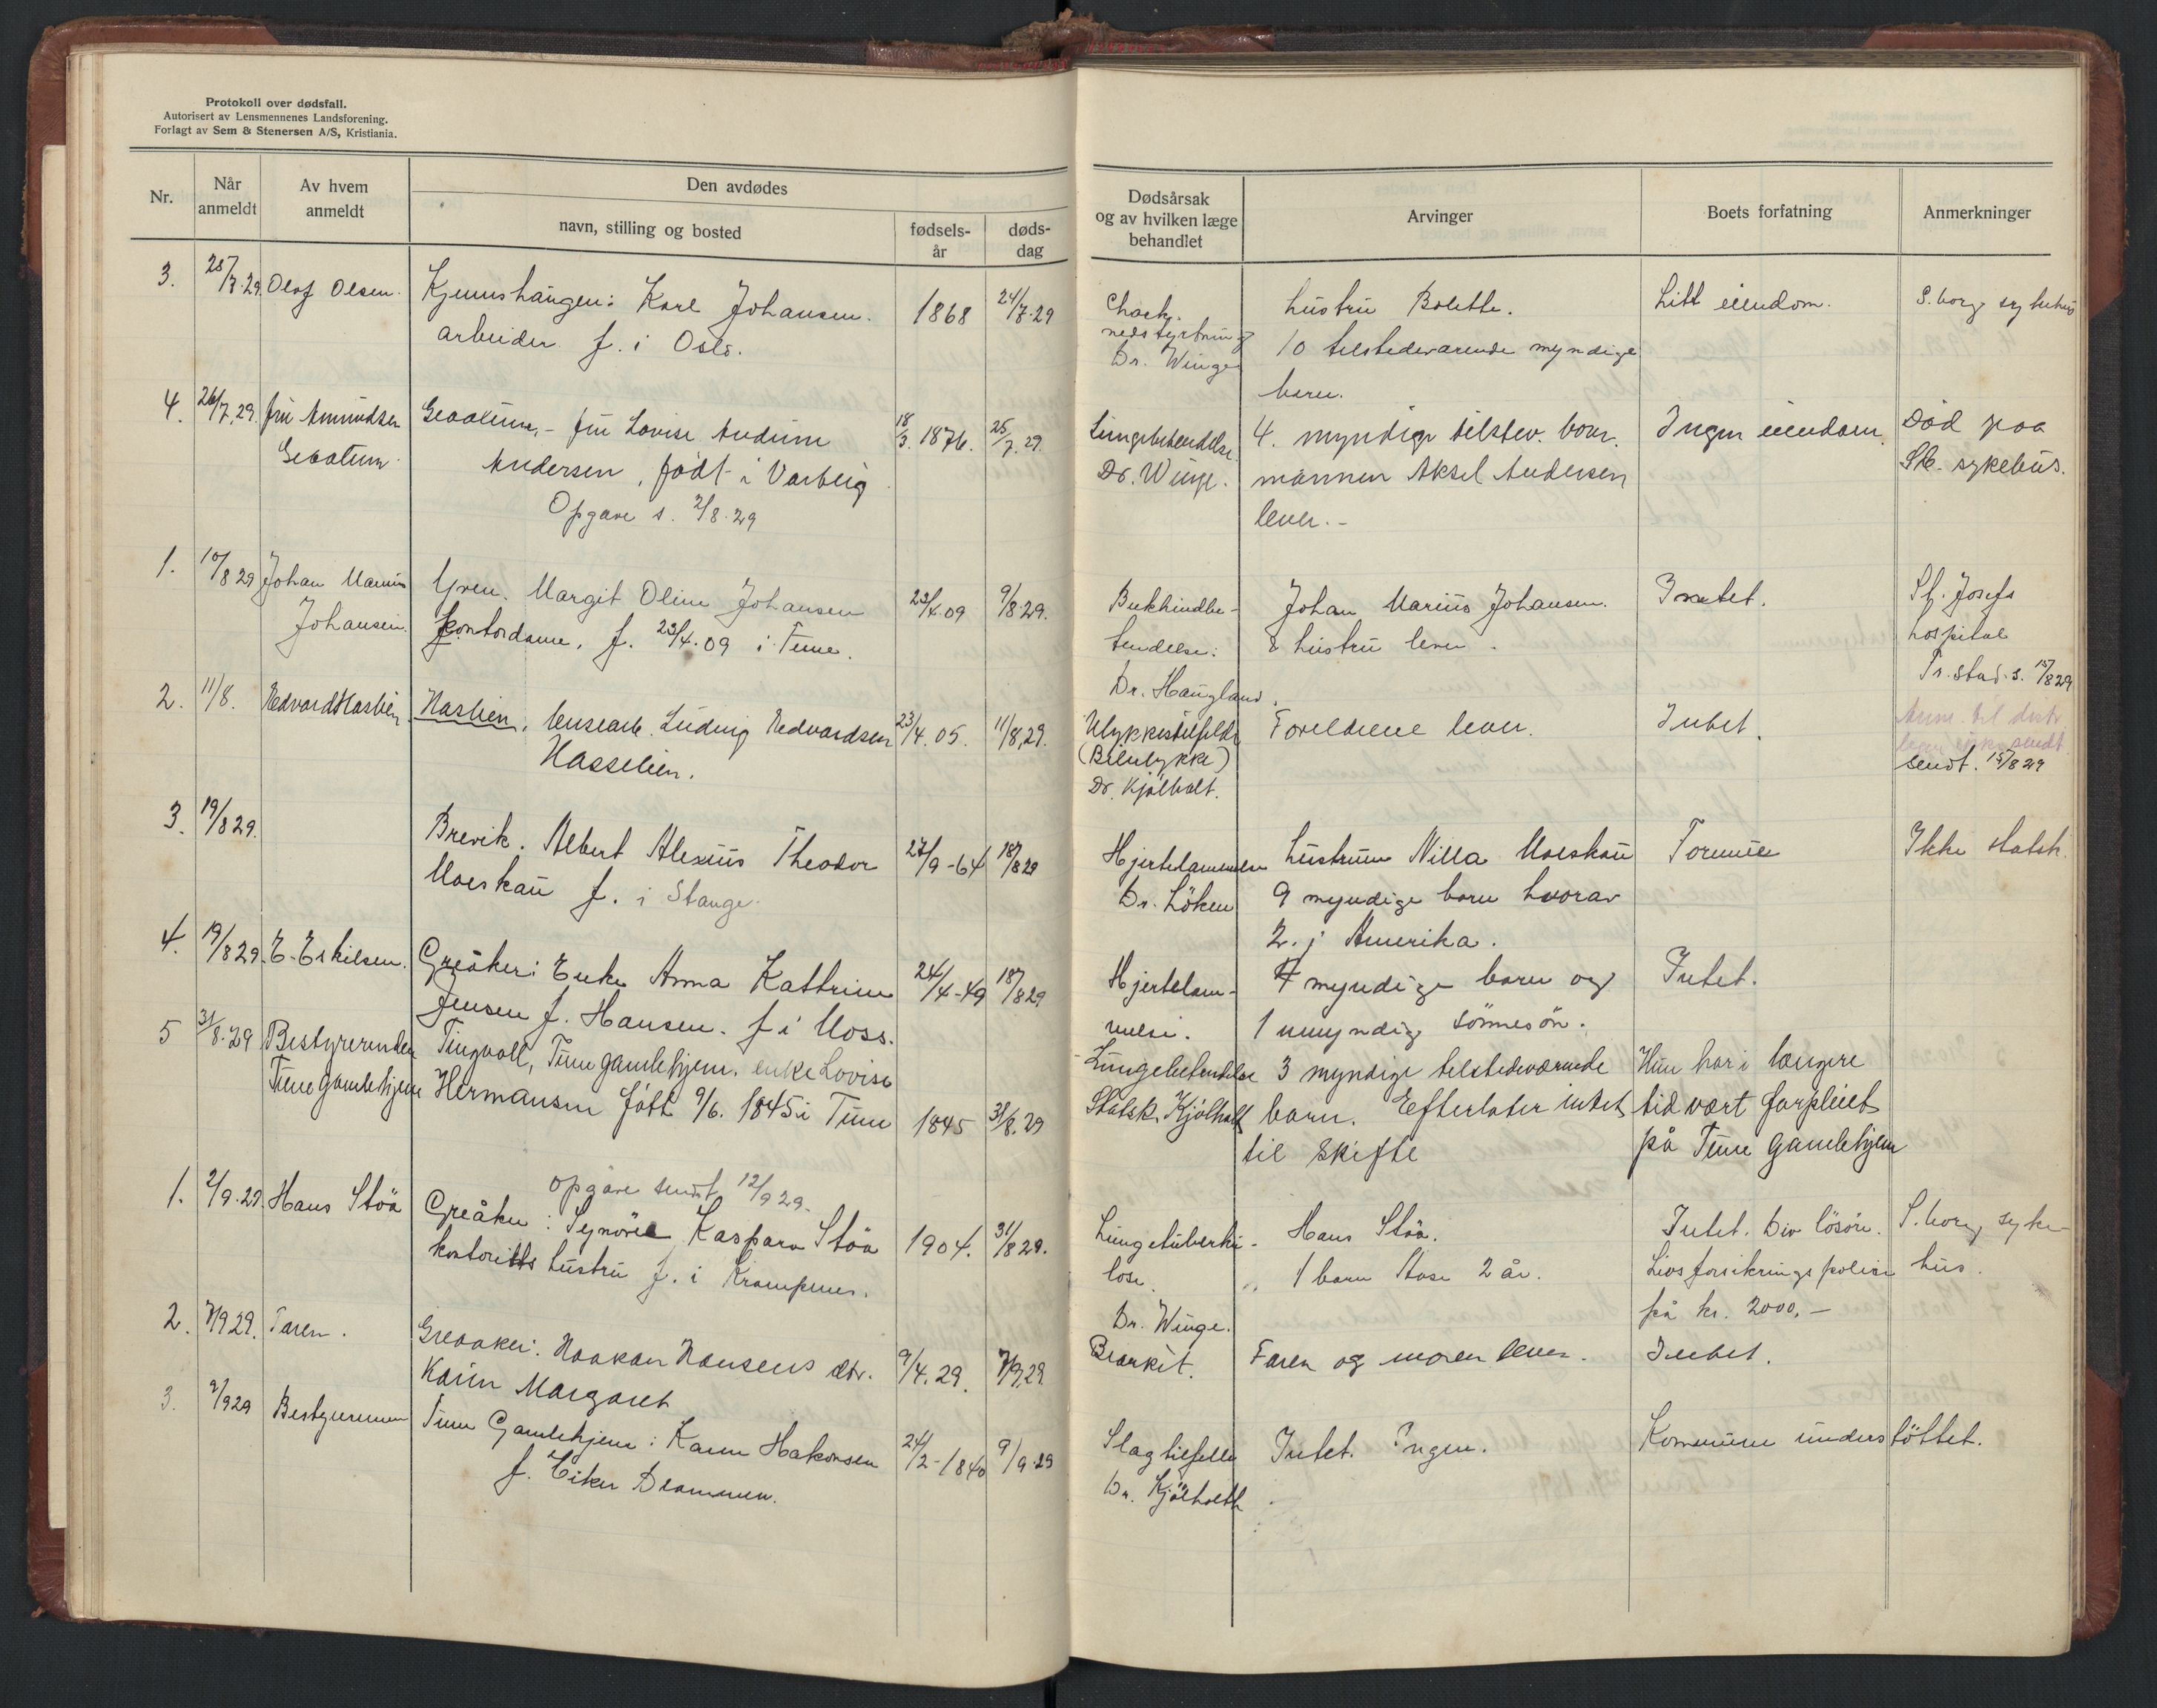 Protokoll over dødsfall.
Autorisert av Lensmennenes Landsforening.
Forlagt av Sem & Stenersen A/S, Kristiania.
Nr.
Når anmeldt
Av hvem anmeldt
Den avdødes
navn, stilling og bosted
fødsels-
år
døds-
dag
Dødsårsak
og av hvilken læge
behandlet
Arvinger
Boets forfatning
Anmerkninger
3. 25/7.29 Olaf Olsen. Karl Johansen. 1868 24/7.29
arbeider f. i Oslo.
Chock.
nedstyrtning
Dr. Winge
hustru Bolette.
10 tilstedeværende myndige
barn.
Litt eiendom.
S.borg sykehus
4. 26/7.29. fru Amundsen
fru Lovise
Andersen, født i Varberg
Opgave s. 2/8.29
18/3. 1876. 25/7.29.
Lungebetendelse
Dr. Winge.
4. myndige tilstev. barn.
mannen Aksel Andersen
lever.-
Ingen eiendom.
Død paa
Sb. sykehus.
1. 10/8 29 Johan Marius
Johansen.
Yven. Margit Oline Johansen
kontordame, f. 23/4.09 i Tune.
23/4.09 9/8 29.
Bukhindbe-
tendelse.
Dr. Haugland.
Johan Marius Johansen.
& hustru lever.
Intet.
St. Josefs
hospital
15/8 29
2. 11/8. Hedvard Haslien
Haslien, Ludvig Hedvardsen
Hasselien.
23/4.05. 11/8.29.
Ulykkestilfelde
(Bilulykke)
Dr. Kjølholt.
Foreldrene lever.
Intet.
sendt. 15/8 29
3. 19/8 29.
Brevik. Albert Alexius Theodor
Moeskau f. i Stange.
27/9-64 18/8 29
Hjertelammelse
Dr. Löken
hustruen Nilla Moeskau
9 myndige barn hvorav
2. i Amerika.
Formue
Ikke statsk.
4. 19/8 29. E. Eskilsen.
Greåker: Enke Anna Kathrine
Jensen f. Hansen. f i Moss.
24/4-49 18/8 29
Hjertelam-
melse.
4 myndige barn og
1 umyndig sönnesön.
Intet.
5 31/8.29 Bestyrerinden
Tune gamlehjem
Tingvoll, Tune gamlehjem. enke Lovise
Hermansen født 9/6. 1845 i Tune
1845 31/8.29
Lungebetendelse
Statsk. Kjölholt
3 myndige tilstedeværende
barn. Efterlater intet
til skifte
Hun har i længere
tid vært forpleiet
på Tune gamlehjem
opgave sendt 12/9 29.
1. 2/9.29 Hans Stöa
Greåker: Synöve Kaspara Stöa
hustru f. i
1904. 31/8 29.
Lungetuberku-
lose.
Dr. Winge.
Hans Stöa.
„ 1 barn Aase 2 år.
Intet. Div lösöre.
Livsforsikringspolise
på kr. 2000,-
S.borg syke-
hus.
2. 7/9 29. Faren.
Greaaker: Haakon Hansens dtr.
Karin Margaret
9/4.29. 7/9.29.
Bronkit.
Faren og moren lever.
Intet.
3. 9/9 29 Bestyrerinnen
Tune Gamlehjem: Karen Hakonsen
f. Eiker Drammen.
24/2-1840 9/9.29
Slagtilfelle
Dr. Kjölholth
Intet. Ingen.
Kommune understöttet.